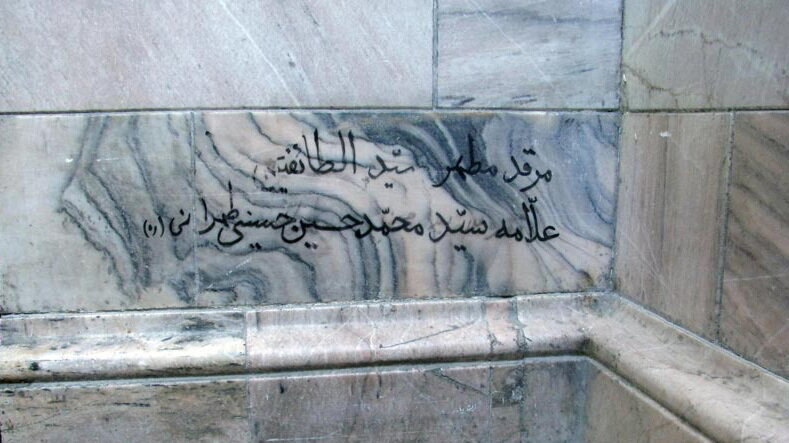 مرقد مطهر سیّد الطائفتین
علّامه سیّد محمّد حسین حسینی طهرانی (ره)